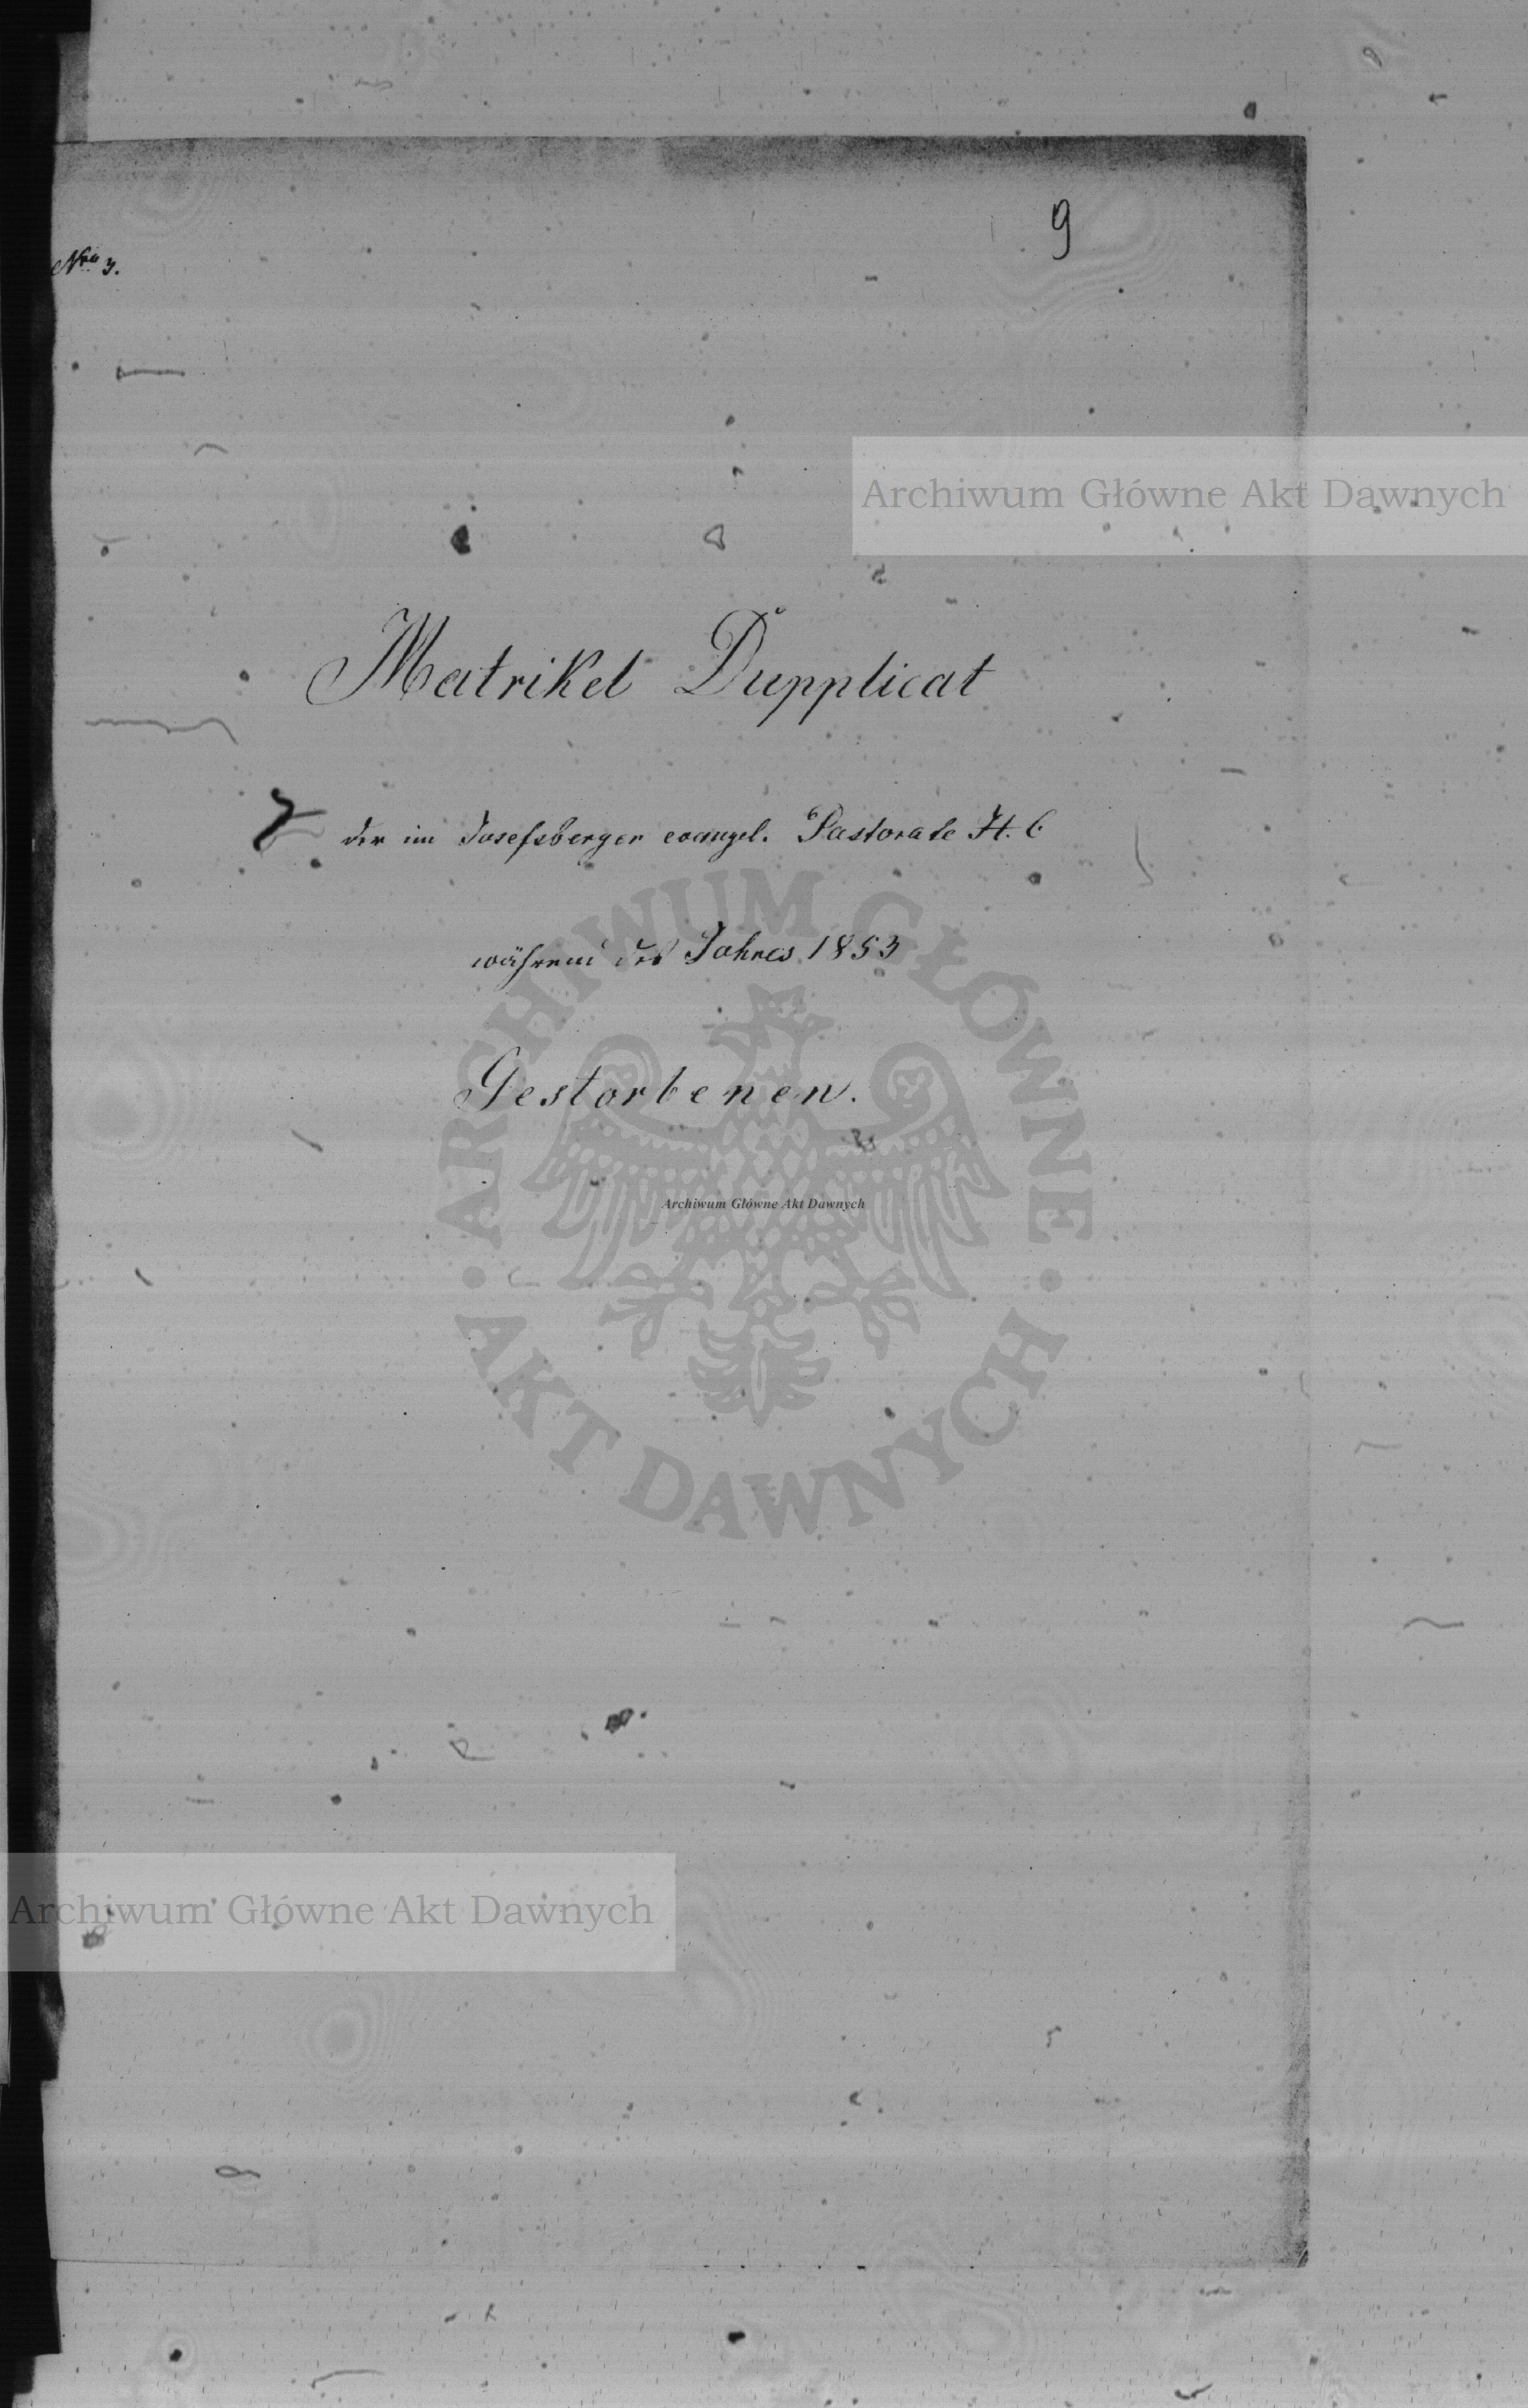 9
Nro 3.
Archiwum Główne Akt Dawnych
Matrikel Dupplicat
der im Josefsberger evangel. Pastorate H. C
während des Jahres 1853
ARCHIWUM GŁÓWNE
Gestorbenen.
Archiwum Główne Akt Dawnych
AKT DAWNYCH
Archiwum Główne Akt Dawnych